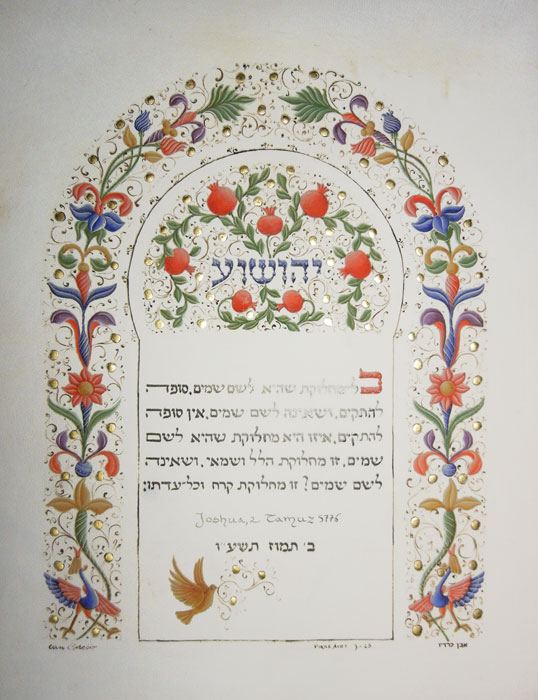 יהושוע
כל-מחלוקת שהיא לשם שמים. סופה
להתקים. ושאינה לשם שמים. אין סופה
להתקים. איזו היא מחלוקת שהיא לשם
שמים. זו מחלוקת הלל ושמאי. ושאינה
לשם שמים? זו מחלוקת קרח וכל-עדתו:
Joshua, 2 Tamuz 5776
ב׳ תמוז תשע״ו